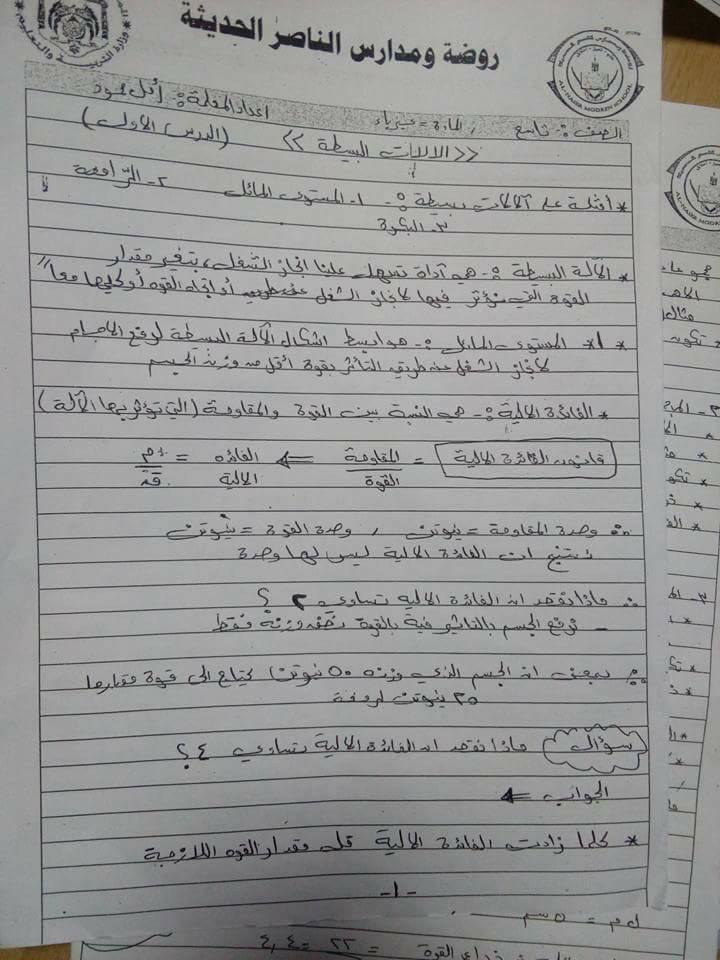 روضة ومدارس الناصر الحديثة
AL-NASR MODREN SCHOOL
الصف : تاسع , المادة = فيزياء اعداد المعلمة : أمل
>> الالات البسيطة << (الدرس الاول)
* أمثلة على آلات بسيطة :- ١- المستوى المائل ٢- الرافعة
٣- البكرة
* الآلة البسيطة :- هي أداة تسهل علينا انجاز الشغل، بتغير مقدار
القوة التي نؤثر فيها لانجاز الشغل عن طريق أو اتجاه القوه أو كليهما معاً"
* ١* المستوى المائل :- هو ابسط اشكال الآلة البسيطة لرفع الاجسام
لانجاز الشغل عن طريق التأثر بقوة أقل من وزن الجسم
* الفائدة الالية :- هي النسبة بين القوة والمقاومة (التي تؤثر بها الآلة)
قانون الفائدة الالية = المقاومة / القوة ⇐ الفائده الالية = م / ق
∴ وحدة المقاومة = نيوتن , وحدة القوة = نيوتن
نستنتج ان الفائدة الالية ليس لها وحدة
∴ ماذا نقصد ان الفائدة الالية تساوي ٢ ؟
- نرفع الجسم بالتاثير فية بالقوة نصف وزنة فقط
بمعنى ان الجسم الذي وزنه ٥٠ نيوتن يحتاج الى قوة مقدارها
٢٥ نيوتن لرفعة
سؤال ماذا نقصد ان الفائدة الالية تساوي ٤ ؟
الجواب ⇐
* كلما زادت الفائدة الالية قل مقدار القوه اللازمة
-١-
ل م = ٥ سم
القوة = ٢٢ = ٤,٤